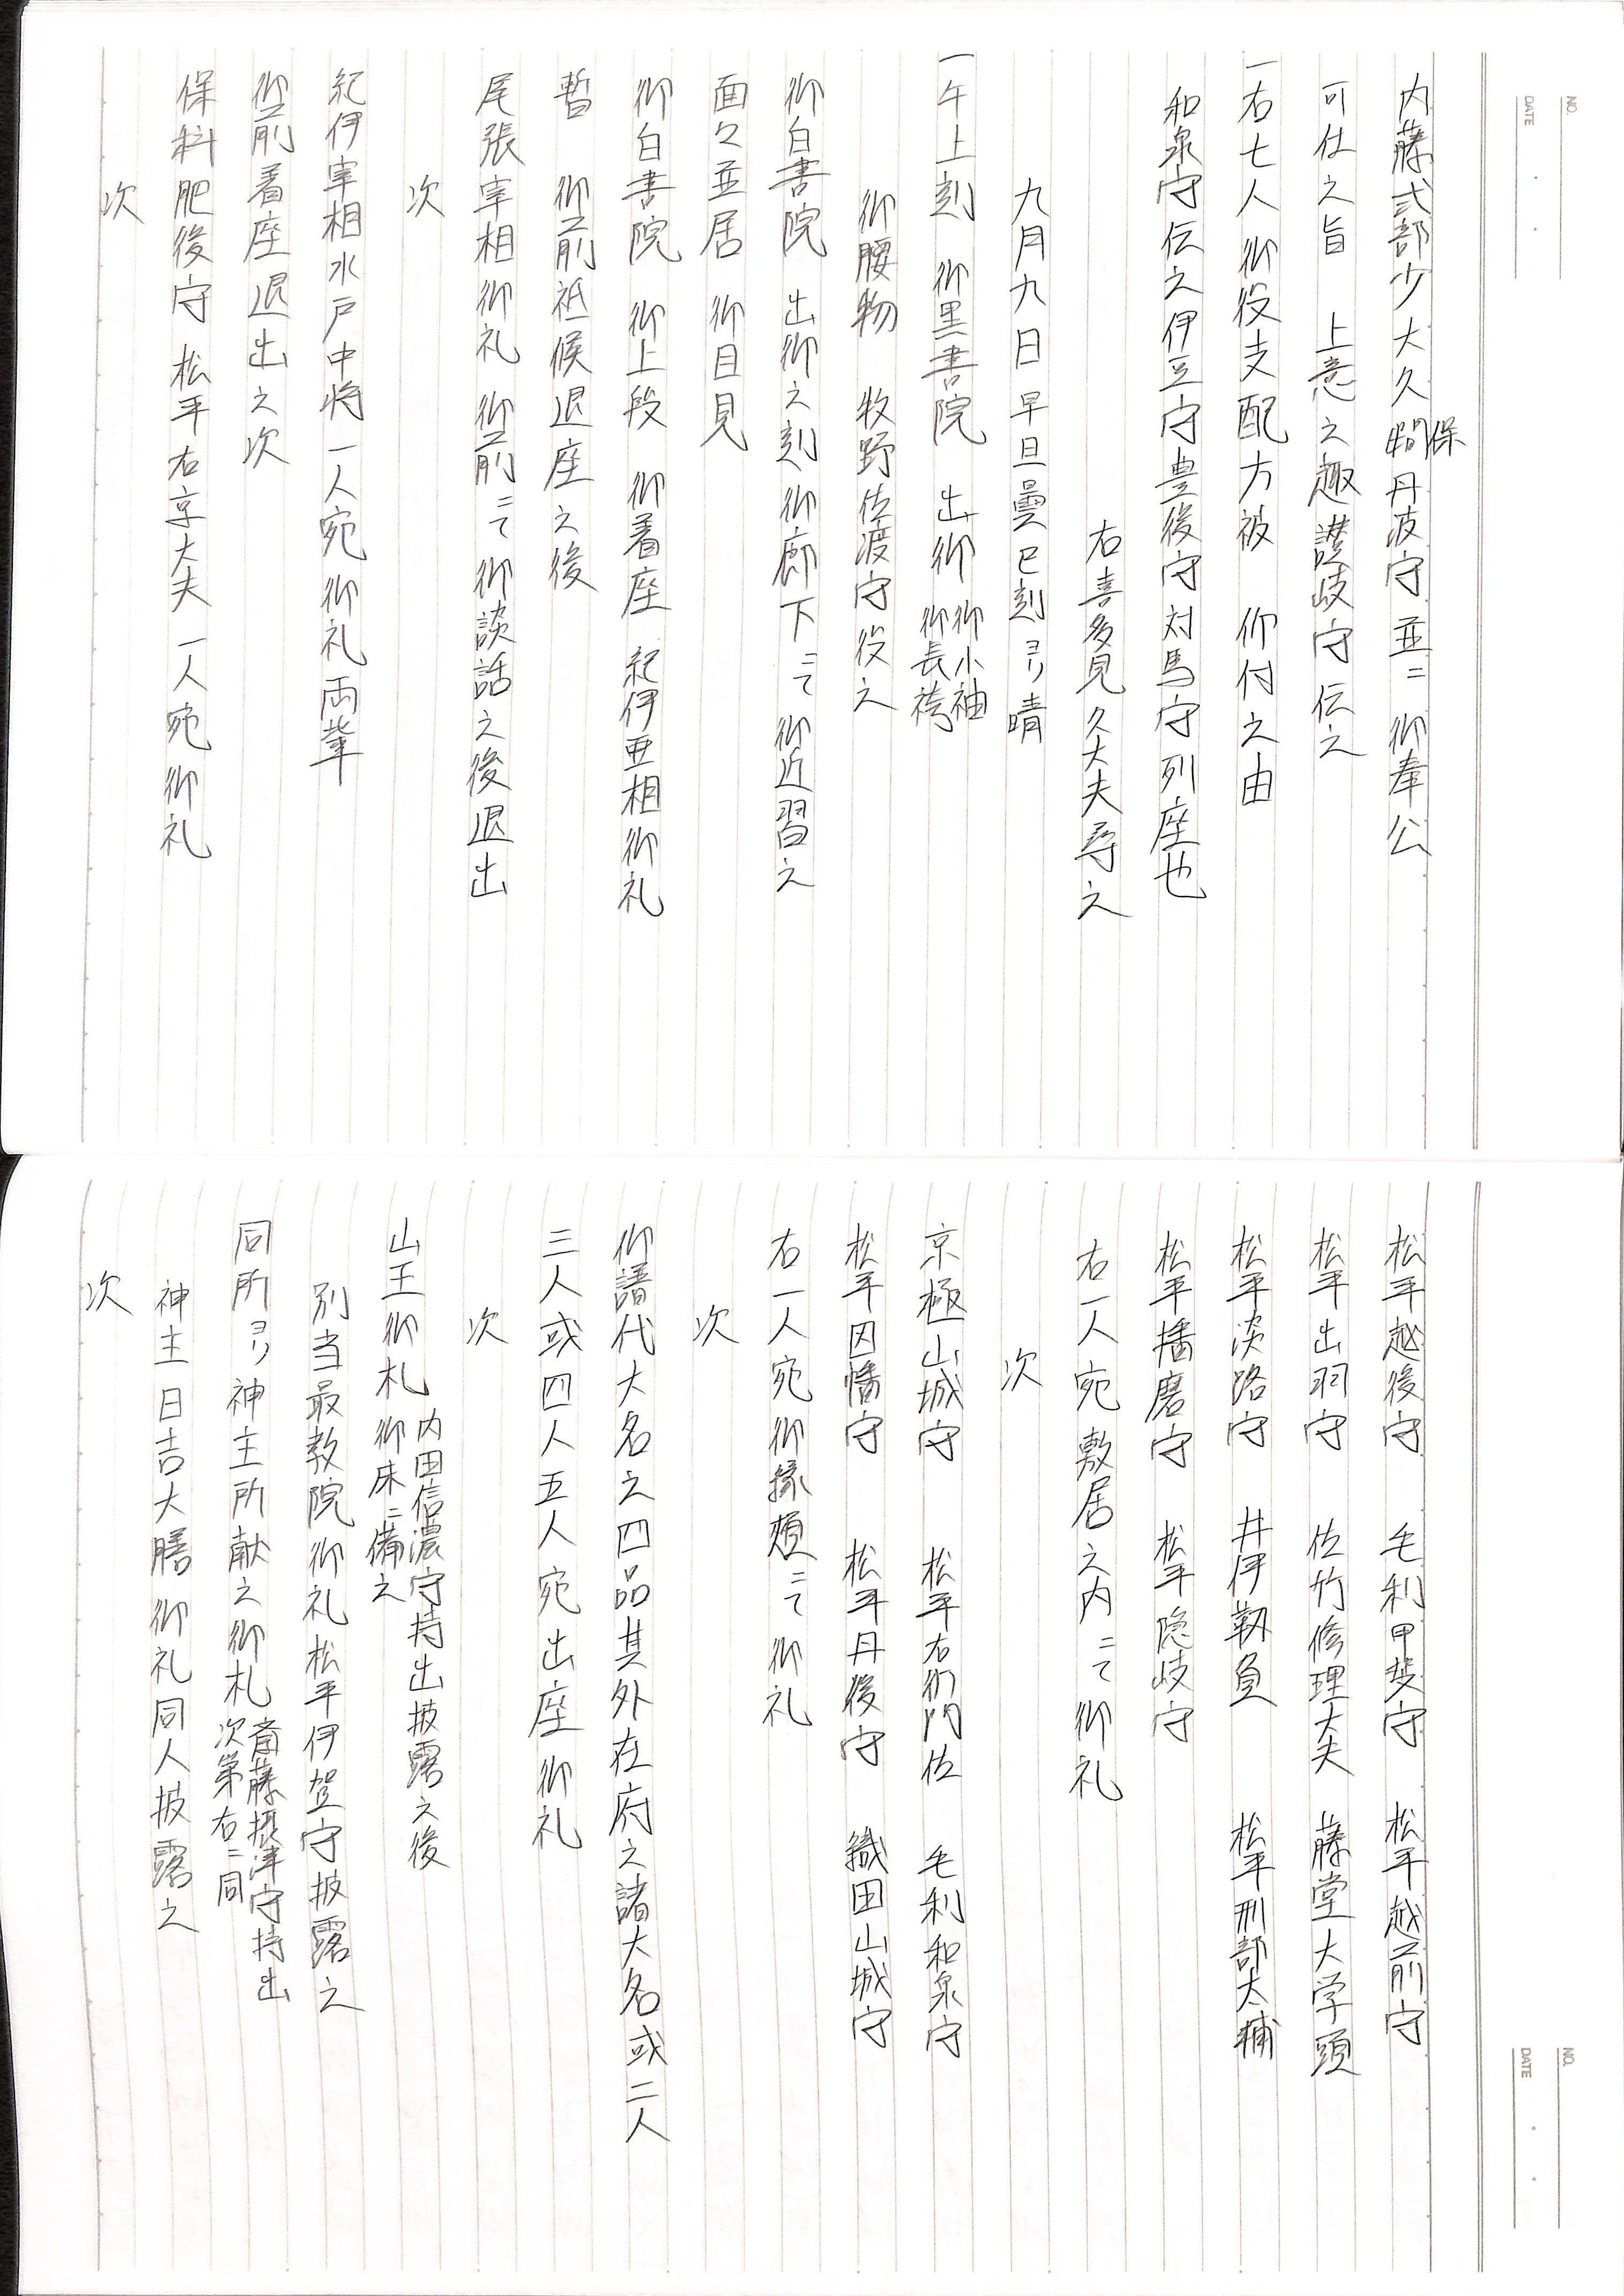 NO.
DATE
内藤式部少大久保丹波守並ニ 御奉公
可仕之旨 上意之趣讃岐守伝之
一右七人御役支配方被 仰付之由
和泉守伝之伊豆守豊後守対馬守列座也
右喜多見久大夫尋之
九月九日早旦曇巳刻ヨリ晴
一午上刻 御黒書院 出御 御小袖 御長袴
御腰物 牧野佐渡守役之
御白書院 出御之刻御廊下ニて御近習之
面々並居 御目見
御白書院 御上段 御着座 紀伊亜相御礼
暫 御前祗候退座之後
尾張宰相御礼 御前ニて御談話之後退出
次
紀伊宰相水戸中将一人宛御礼両輩
御前着座退出之次
保科肥後守 松平右京大夫一人宛御礼
次
NO.
DATE
松平越後守 毛利甲斐守 松平越前守
松平出羽守 佐竹修理大夫 藤堂大学頭
松平淡路守 井伊靱負 松平刑部太輔
松平播磨守 松平隠岐守
右一人宛敷居之内ニて御礼
次
京極山城守 松平右衛門佐 毛利和泉守
松平因幡守 松平丹後守 織田山城守
右一人宛御縁頬ニて御礼
次
御譜代大名之四品其外在府之諸大名或二人
三人或四人五人宛出座御礼
次
山王御札 内田信濃守持出披露之後 御床ニ備之
別当最教院御礼松平伊賀守披露之
同所ヨリ神主所献之御札 斎藤摂津守持出 次第右ニ同
神主日吉大膳御礼同人披露之
次